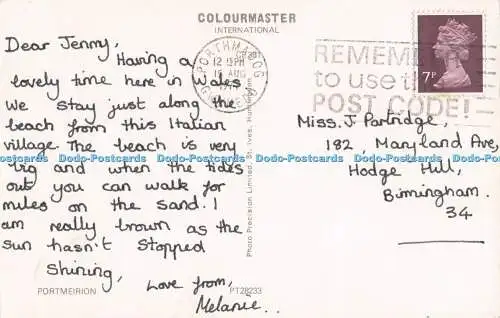 COLOURMASTER
INTERNATIONAL
Dear Jenny,
Having a
lovely time here in Wales
We stay just along the
beach from this Italian
village. The beach is very
big and when the tides
out you can walk for
miles on the sand. I
am really brown as the
sun hasn't stopped
Shining,
Love from,
Melanie..
PORTMEIRION
PT28233
Photo Precision Limited, St. Ives, Huntingdon
PORTHMADOG
12 15PM
AUG
GWYNEDD
REMEMBER
to use the
POST CODE!
7P
Miss. J Partridge,
182, Maryland Ave,
Hodge Hill,
Birmingham.
34
Dodo-Postcards Dodo-Postcards Dodo-Postcards Dodo-Postcards Dodo-Postcards